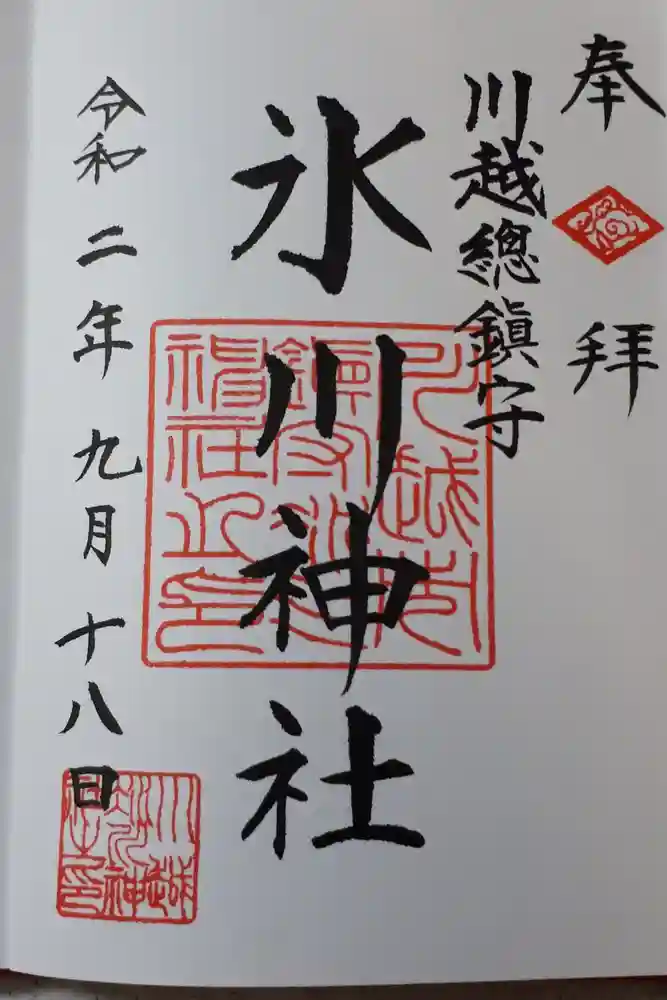 奉拝
川越總鎮守
氷川神社
令和二年九月十八日